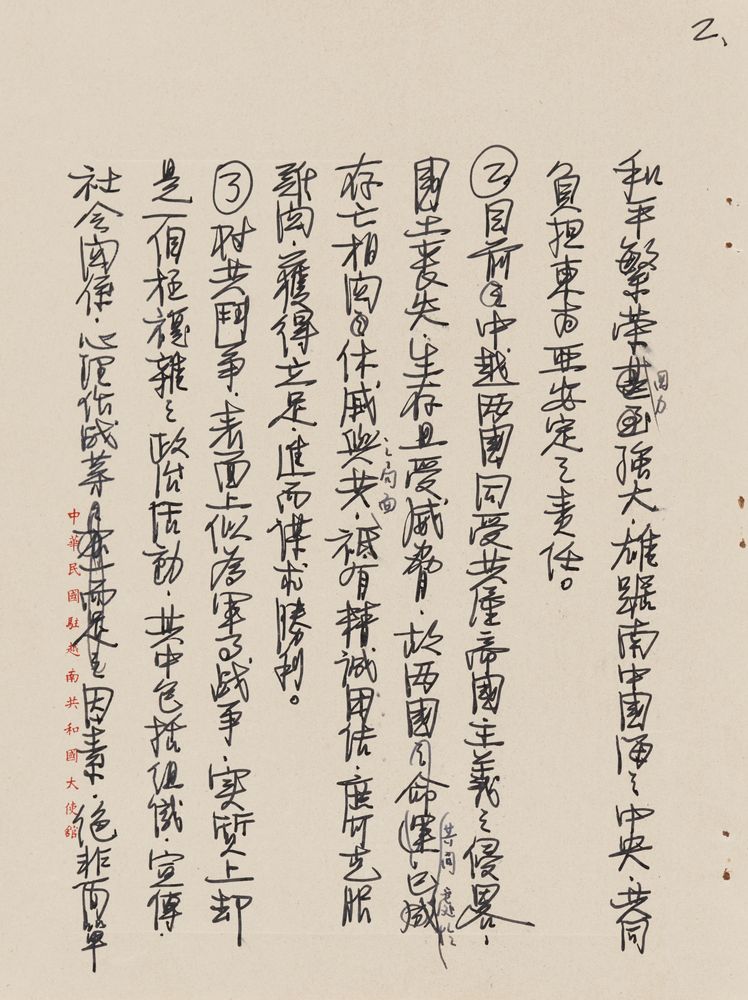 2、
和平繁荣國力強大，雄踞南中國海之中央，共同
負担東南亞安定之責任。
②目前中越两國同受共產帝國主義之侵畧，
國土喪失，生存且受威脅，故两國命運已成
共同處於
存亡相関休戚與共之局面，祗有精誠团结，庶可克服
難関，獲得立足，進而謀求勝利。
③对共鬥争，表面上似為軍事战争，实质上却
是一個極複雜之政治活動，其中包括组織，宣傳，
社会関係，心理作战等因素，絕非简單
中華民國駐越南共和國大使館